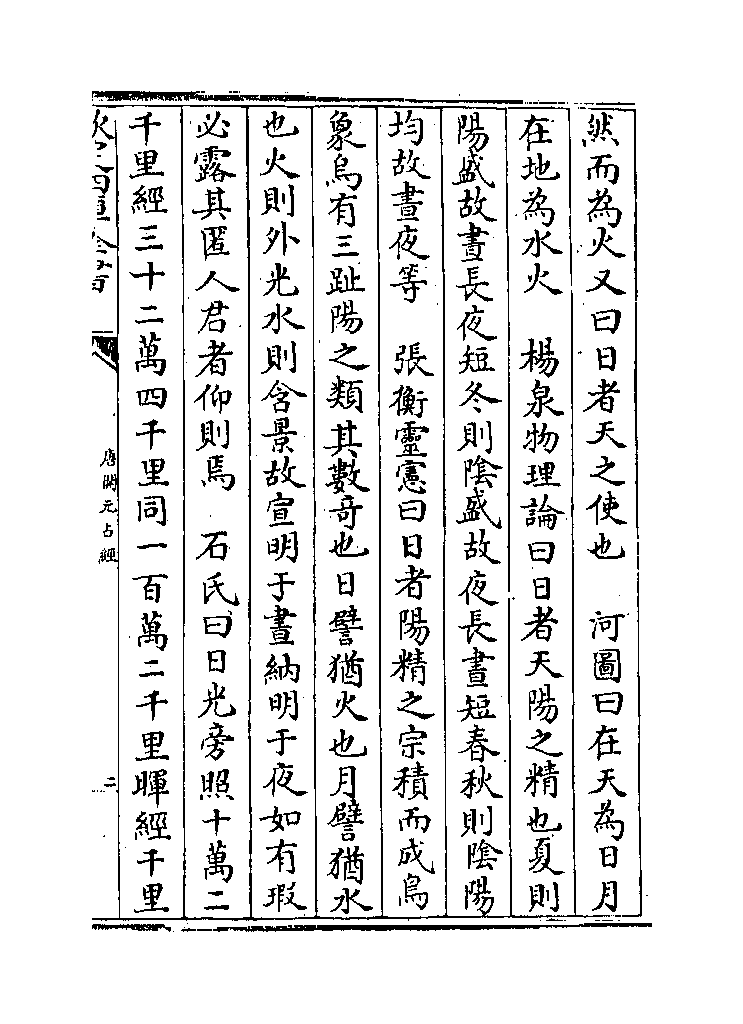 然而為火又曰日者天之使也　河圖曰在天為日月
在地為水火　楊泉物理論曰日者天陽之精也夏則
陽盛故晝長夜短冬則陰盛故夜長晝短春秋則陰陽
均故晝夜等　張衡靈憲曰日者陽精之宗積而成鳥
象烏有三趾陽之類其數奇也日譬猶火也月譬猶水
也火則外光水則含景故宣明于晝納明于夜如有瑕
必露其匿人君者仰則焉　石氏曰日光旁照十萬二
千里經三十二萬四千里同一百萬二千里暉經千里
欽定四庫全書
唐開元占經
二